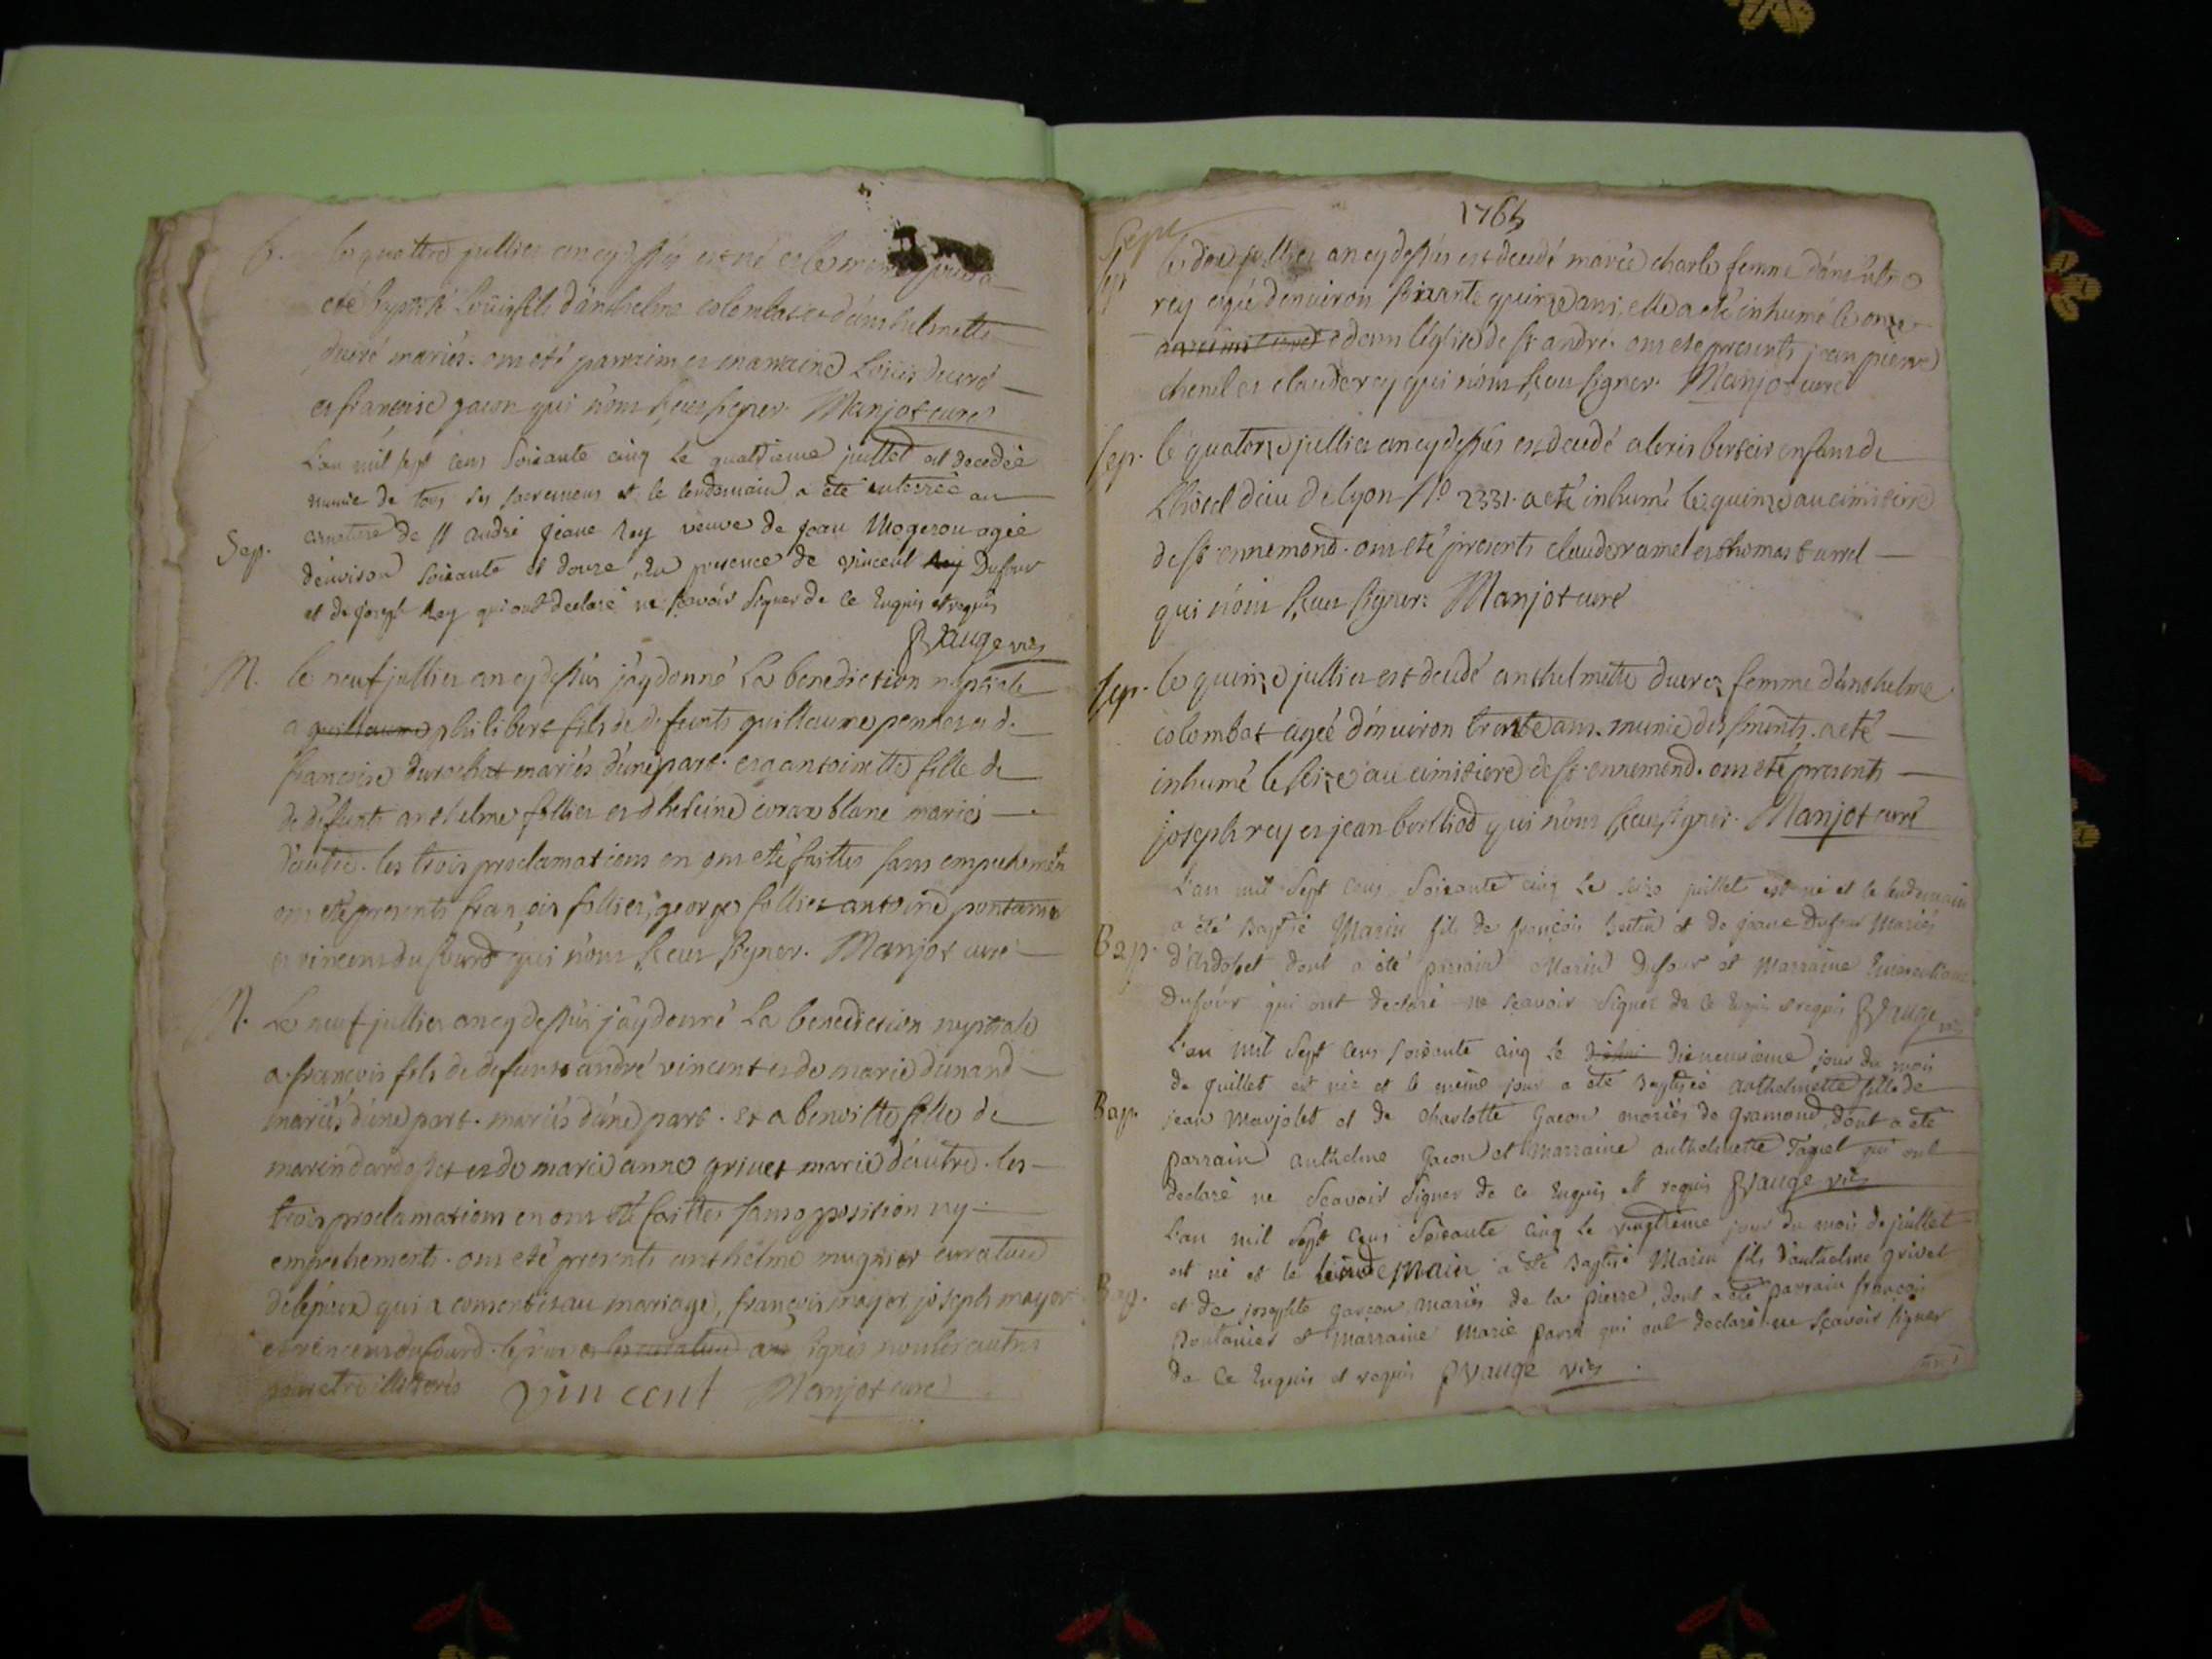 b. le quattre jullier an cy dessus est né et le meme jour a
eté baptisé Loüis fils d'anthelme colombat et d'anthelmette
ducré mariés. ont eté parrain et marraine Loüis ducré
et françoise gacon qui n'ont sceu signer. Manjot curé
L'an mil sept cens soixante cinq Le quatrieme juillet est decedée
munie de tous ses sacremens et le lendemain a été enterrée au
Sep. cimetiere de st andré jeane Rey veuve de jean Mogeron agée
d'environ soixante et douze, en presence de vincent Rey Dufour
et de joseph Rey qui ont declaré ne sçavoir signer de ce Enquis et requis
PVauge vic
M. le neuf jullier an cy dessus j'ay donné La benediction nuptiale
a guillaume philibert fils de defunts guillaume et de
françoise durochat mariés d'une part. et a antoinette fille de
de defunts anthelme follier et blanc mariés
d'autre. les trois proclamations en ont eté faittes sans empechement
ont eté presents françois follier, george follier antoine
et vincent dufourd qui n'ont sceu signer. Manjot curé
M. Le neuf jullier an cy dessus j'ay donné La benediction nuptiale
a françois fils de defunts andré vincent et de marie dunand
mariés d'une part. mariés d'une part. et a benoitte fille de
marin dardosset et de marie anne grivet mariés d'autre. les
trois proclamations en ont eté faittes sans opposition ny
empechements. ont eté presents anthelme mugnier curateur
de l'epoux qui a consenti au mariage, françois mayer, joseph mayer
et vincent dufourd. l'epoux et le curateur a signé non les autres
pour etre illiterés vincent Manjot curé
1765
Sept
Sep le dix jullier an cy dessus est decedé marie charle femme
rey agée d'environ soixante quinze ans, elle a eté inhumé le onze
au cimitiere dans l'église de st andré. ont eté presents jean pierre
chenel et claude rey qui n'ont sceu signer. Manjot curé
Sep. le quatorze jullier an cy dessus est decedé alexis enfant de
L'hotel dieu de lyon N° 2331. a eté inhumé le quinze au cimitiere
de st. ennemond. ont eté presents claude ramel et thomas
qui n'ont sceu signer. Manjot curé
Sep. le quinze jullier est decedé anthelmette ducré femme d'anthelme
colombat agée d'environ trente ans. munie des sments. a eté
inhumé le seize au cimitiere de st. ennemond. ont eté presents
joseph rey et jean berthod qui n'ont sceu signer. Manjot curé
L'an mil sept cens soixante cinq Le seize juillet est né et le lendemain
a été baptisé Marin fils de françois et de jeane Dufour Mariés
Bap. d'ardosset dont a été parrain Marin Dufour et Marraine
Dufour qui ont declaré ne scavoir signer de ce Enquis et requis PVauge vic
L'an mil sept cens soixante cinq le dixneuvieme jour du mois
de juillet est née et le meme jour a été baptisée anthelmette fille de
Bap. jean Marjolet et de charlotte Gacon mariés de gramond, dont a été
parrain anthelme Gacon et Marraine anthelmette Taquet qui ont
declaré ne scavoir signer de ce Enquis et requis PVauge vic
L'an mil sept cens soixante cinq Le vingtieme jour du mois de juillet
est né et le lendemain a été baptisé Marin fils d'anthelme grivet
Bap. et de josephte garçon mariés de la pierre, dont a été parrain françois
pontanier et Marraine Marie parrot qui ont declaré ne sçavoir signer
de ce Enquis et requis PVauge vic